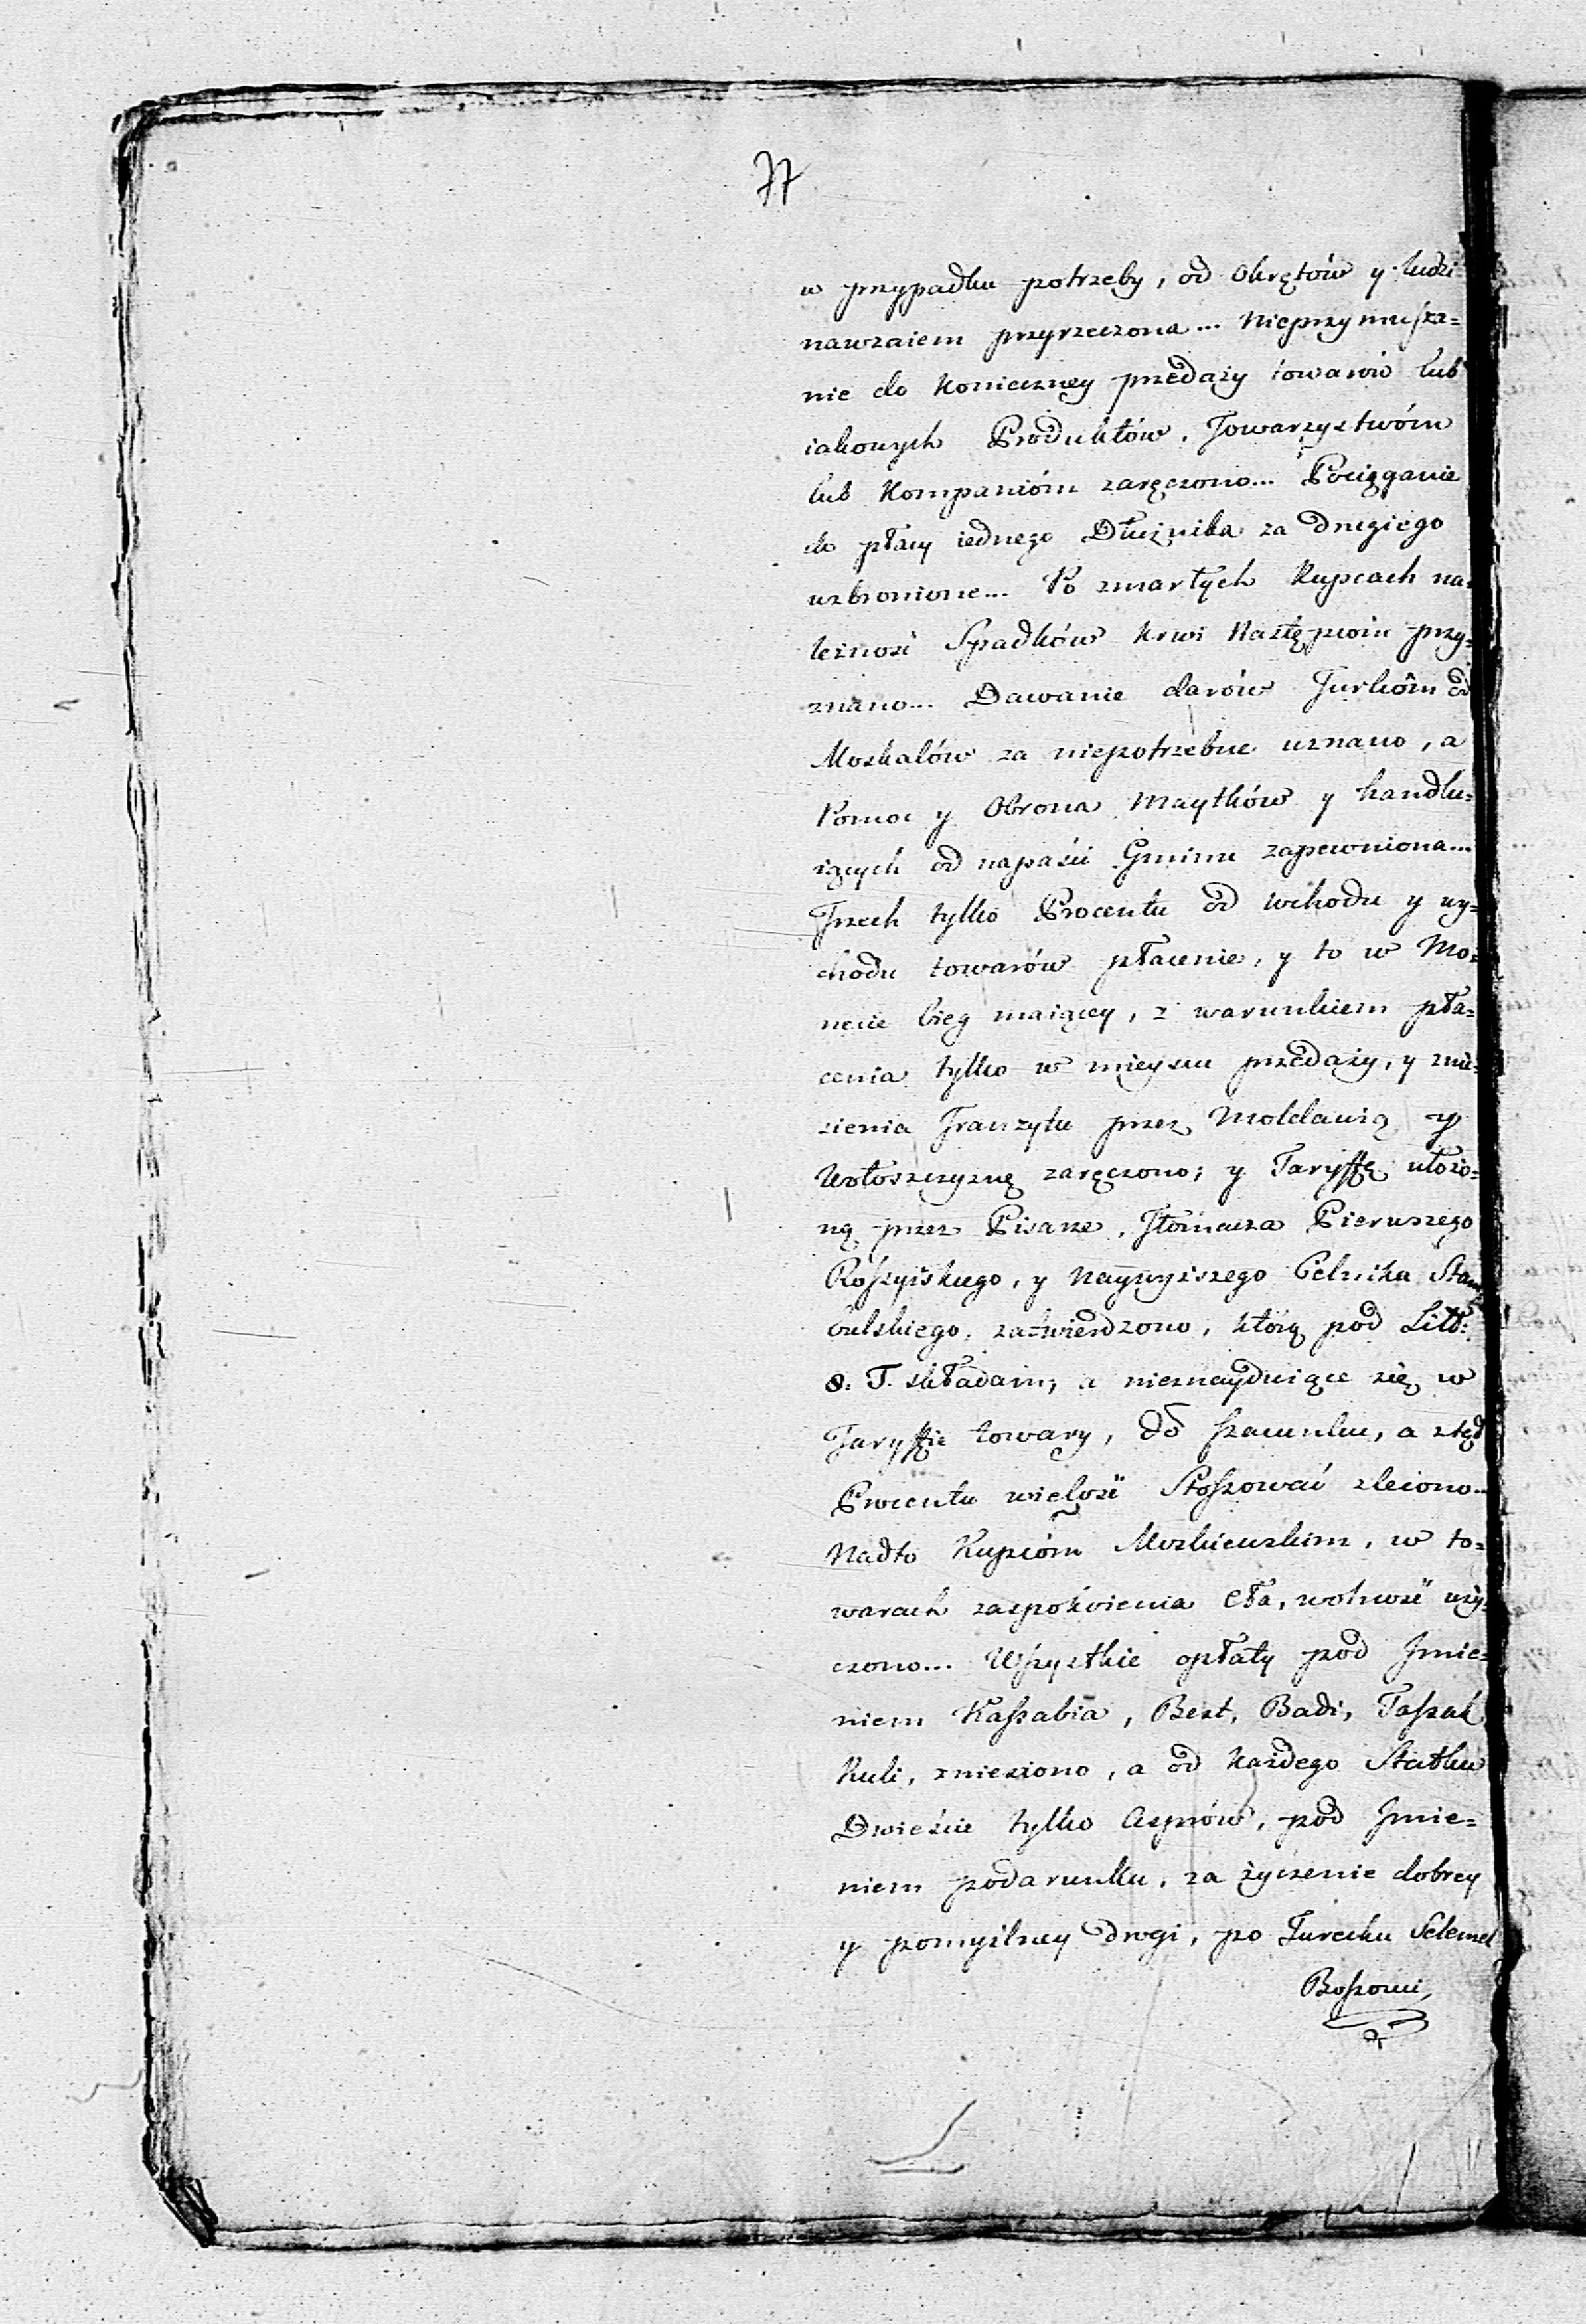 77
w przypadku potrzeby, od Okrętów y ludzi
nawzaiem przyrzeczona... Nieprzymusza=
nie do koniecznęy przedaży towarów lub
iakowych Produktów, Towarzystwóm
lub Kompanióm zaręczono... Pociąganie
do płacy iednego Dłużnika za drugiego
uzbronione... Po zmarłych Kupcach na=
leżność Spadków krwi Następcóm przy=
znano... Dawanie darów Turkôm od
Moskalów za niepotrzebne uznano, a
Pomoc y Obrona Maytków y handlu=
iących od napaści Gminu zapewniona...
Trzech tylko Procentu od wchodu y wy=
chodu towarów płacenie, y to w Mo=
necie bieg maiącey, z warunkiem pła=
cenia tylko w mieyscu przedaży, y znie=
sienia Tranzytu przez Moldawią y
Wołoszczyznę zaręczono; y Taryffę ułożo=
ną przez Pisarze, Tłómacza Pierwszego
Roſsyiskiego, y Naywyższego Celnika Stam
bulskiego, zatwierdzono, którą pod Litt:
8. T. składam; a nieznayduiące się w
Taryffie towary, do szacunku, a ztąd
Procentu wielość Stoſsować zlecono...
Nadto Kupcóm Moskiewskim, w to=
warach zaspokoienia Cła, wolność uży=
czono... Wſzystkie opłaty pod Jmie=
niem Kaſsabia, Best, Badi, Taſsak
Kuli, zniesiono, a od każdego Statku
Dwieście tylko Asprów, pod Jmie=
niem podarunku, za życzenie dobrey
y pomyślney drogi, po Turecku Selemet
Boſsowi,